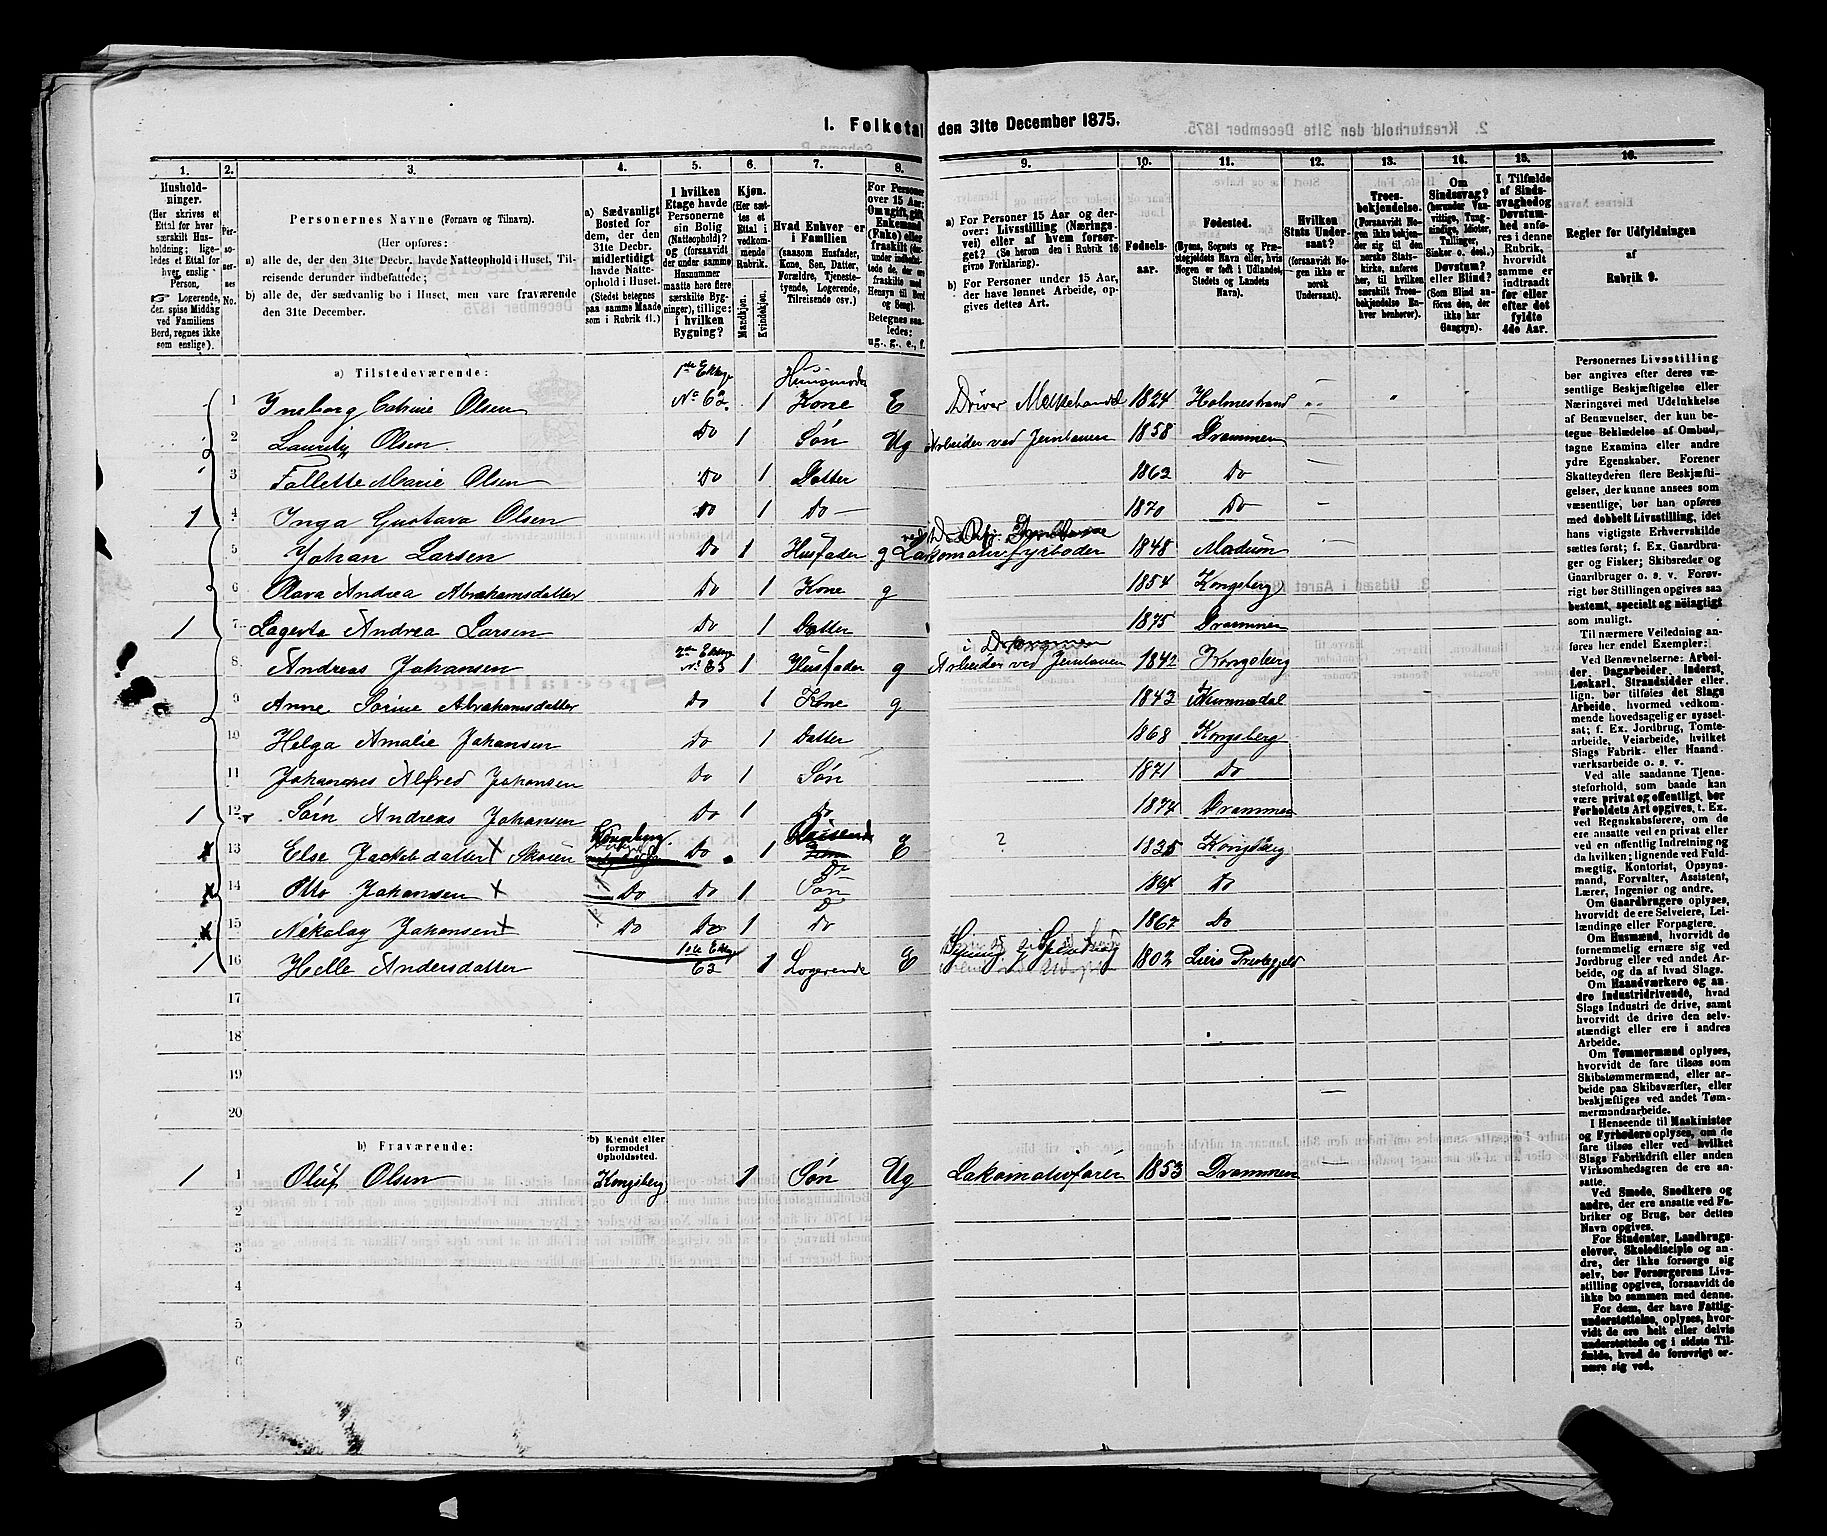 1. Folketal den 31te December 1875.
1. 2. 3. 4. 5. 6. 7. 8. 9. 10. 11. 12. 13. 14. 15. 16.
Hushold-
ninger.
(Her skrives et
Ettal for hver
særskilt Hus-
holdning; lige-
ledes et Ettal for
hver enslig
Person.
☞ Logerende,
der spise Middag
ved Familiens
Bord, regnes ikke
som enslige).
Per-
so-
ner-
nes
No.
Personernes Navne (Fornavn og Tilnavn).
(Her opføres:
a) alle de, der den 31te Decbr. havde Natteophold i Huset, Til-
reisende derunder indbefattede;
b) alle de, der sædvanlig bo i Huset, men vare fraværende
den 31te December.
a) Sædvanligt
Bosted for
dem, der den
31te Decbr.
midlertidigt
havde Natte-
ophold i Huset.
(Stedet betegnes
paa samme Maade
som i Rubrik 11.)
I hvilken
Etage havde
Personerne
sin Bolig
(Natteophold)?
og (forsaavidt
der under samme
Husnummer
maatte høre flere
særskilte Byg-
ninger), tillige:
i hvilken
Bygning?
Kjøn.
(Her sæt-
tes et
Ettal i
vedkom-
mende
Rubrik.
Mandkjøn.
Kvindekjøn.
Hvad Enhver er
i Familien
(saasom Husfader,
Kone, Søn, Datter,
Forældre, Tjeneste-
tyende, Logerende,
Tilreisende osv.)
For Personer
over 15 Aar:
Om ugift, gift,
Enkemand
(Enke) eller
fraskilt
Betegnes saa-
ledes:
ug., g., e., f.
a) For Personer 15 Aar og der-
over: Livsstilling (Nærings-
vei) eller af hvem forsør-
get? (Se herom den i Rubrik 16
givne Forklaring).
b) For Personer under 15 Aar,
der have lønnet Arbeide, op-
gives dettes Art.
Fødsels-
aar.
Fødested.
(Byens, Sognets og Præ-
stegjeldets Navn eller, hvis
Nogen er født i Udlandet,
Stedets og Landets
Navn).
Hvilken
Stats Under-
saat?
(forsaavidt No-
gen ikke er
norsk
Undersaat).
Troes-
bekjendelse.
(Forsaavidt No-
gen ikke bekjen-
der sig til den
norske Stats-
kirke, anføres
her, til hvilken
særskilt Troes-
bekjendelse En-
hver henhører).
Om
Sindssvag?
(herunder Van-
vittige, Tung-
sindige, Idioter,
Tullinger,
Sinker o. desl.)
Døvstum?
eller Blind?
(Som Blind an-
føres den, der
ikke har
Gangsyn).
I Tilfælde
af Sinds-
svaghed og
Døvstum-
hed anfø-
res i denne
Rubrik,
hvorvidt
samme er
indtraadt
før eller
efter det
fyldte
4de Aar.
Regler for Udfyldningen
af
Rubrik 9.
a) Tilstedeværende:
1 Ineborg Catrine Olsen 1ste Etage No 62 1 Husmoder Kone E Driver Melkehandel 1824 Holmestrand
2 Lauritz Olsen Do 1 Søn Ug Arbeider ved Jernbanen 1858 Drammen
3 Follette Marie Olsen Do 1 Datter 1862 Do
1 4 Inga Gustava Olsen Do 1 Do 1870 Do
5 Johan Larsen Do 1 Husfader g Lakomotivfyrboder 1848 Modum
6 Olava Andrea Abrahamsdatter Do 1 Kone g 1854 Kongsberg
1 7 Lagerta Andrea Larsen Do 1 Datter 1875 Drammen
8 Andreas Johansen 2den Etage No 65 1 Husfader g Arbeider ved Jernbanen i Drammen 1842 Kongsberg
9 Anne Sørine Abrahamsdatter Do 1 Kone g 1843 Nummedal
10 Helga Amalie Johansen Do 1 Datter 1868 Kongsberg
11 Johannes Alfred Johansen Do 1 Søn 1871 Do
1 12 Sørn Andreas Johansen Do 1 Do 1874 Drammen
x 13 Else Jackobdatter x Skoien Kongsberg Do 1 E ? 1835 Kongsberg
x 14 Otto Johansen x Do Do 1 Søn Do 1864 Do
x 15 Nikolay Johansen x Do Do 1 Do Do 1867 Do
1 16 Helle Andersdatter 1ste Etage 62 1 Logerende E 1802 Liers Prestegjeld
17
18
19
20
b) Fraværende:
b) Kjendt eller
formodet
Opholdssted.
1 1 Oluf Olsen Kongsberg 1 Søn Ug Lakomotivfører 1853 Drammen
2
3
4
5
6
Personernes Livsstilling
bør angives efter deres væ-
sentlige Beskjæftigelse eller
Næringsvei med Udelukkelse
af Benævnelser, der kun be-
tegne Beklædelse af Ombud,
tagne Examina eller andre
ydre Egenskaber. Forener
Skatteyderen flere Beskjæfti-
gelser, der kunne ansees som
væsentlige, bør han opføres
med dobbelt Livsstilling, idet
hans vigtigste Erhvervskilde
sættes først; f. Ex. Gaardbru-
ger og Fisker; Skibsreder og
Gaardbruger o. s. v. Forøv-
rigt bør Stillingen opgives saa
bestemt, specielt og nøiagtigt
som muligt.
Til nærmere Veiledning an-
føres her endel Exempler:
Ved Benævnelserne: Arbei-
der, Dagarbeider, Inderst,
Løskarl, Strandsidder eller
lign. bør tilføies det Slags
Arbeide, hvormed vedkom-
mende hovedsagelig er syssel-
sat; f. Ex. Jordbrug, Tomte-
arbeide, Veiarbeide, hvilket
Slags Fabrik- eller Haand-
værksarbeide o. s. v.
Ved alle saadanne Tjene-
steforhold, som baade kan
være privat og offentligt, bør
Forholdets Art opgives, f. Ex.
ved Regnskabsførere, om de
ere ansatte ved en privat eller
en offentlig Indretning og
da hvilken; lignende ved Fuld-
mægtig, Kontorist, Opsyns-
mand, Forvalter, Assistent,
Lærer, Ingeniør og andre.
Om Gaardbrugere oplyses,
hvorvidt de ere Selveiere, Lei-
lændinge eller Forpagtere.
Om Husmænd, hvorvidt de
fornemmelig ernære sig ved
Jordbrug eller ved andet Ar-
beide, og da af hvad Slags.
Om Haandværkere og an-
dre Industridrivende, hvad
Slags Industri de drive, samt
hvorvidt de drive den selv-
stændigt eller ere i andres
Arbeide.
Om Tømmermænd oplyses,
hvorvidt de fare tilsøs som
Skibstømmermænd, eller ar-
beide paa Skibsværfter, eller
beskjæftiges ved andet Tøm-
mermandsarbeide.
I Henseende til Maskinister
og Fyrbødere oplyses, om de
fare tilsøs eller ved hvilket
Slags Fabrikdrift eller anden
Virksomhedsgren de ere an-
satte.
Ved Smede, Snedkere og
andre, der ere ansatte ved Fa-
briker og Brug, bør dettes
Navn opgives.
For Studenter, Landbrugs-
elever, Skoledisciple og an-
dre, der ikke forsørge sig
selv, bør Forsørgerens Livs-
stilling opgives, forsaavidt de
ikke bo sammen med denne.
For dem, der have Fattig-
understøttelse, oplyses, hvor-
vidt de ere helt eller delvis
understøttede og i sidste Til-
fælde, hvad de forøvrigt er-
nære sig ved.